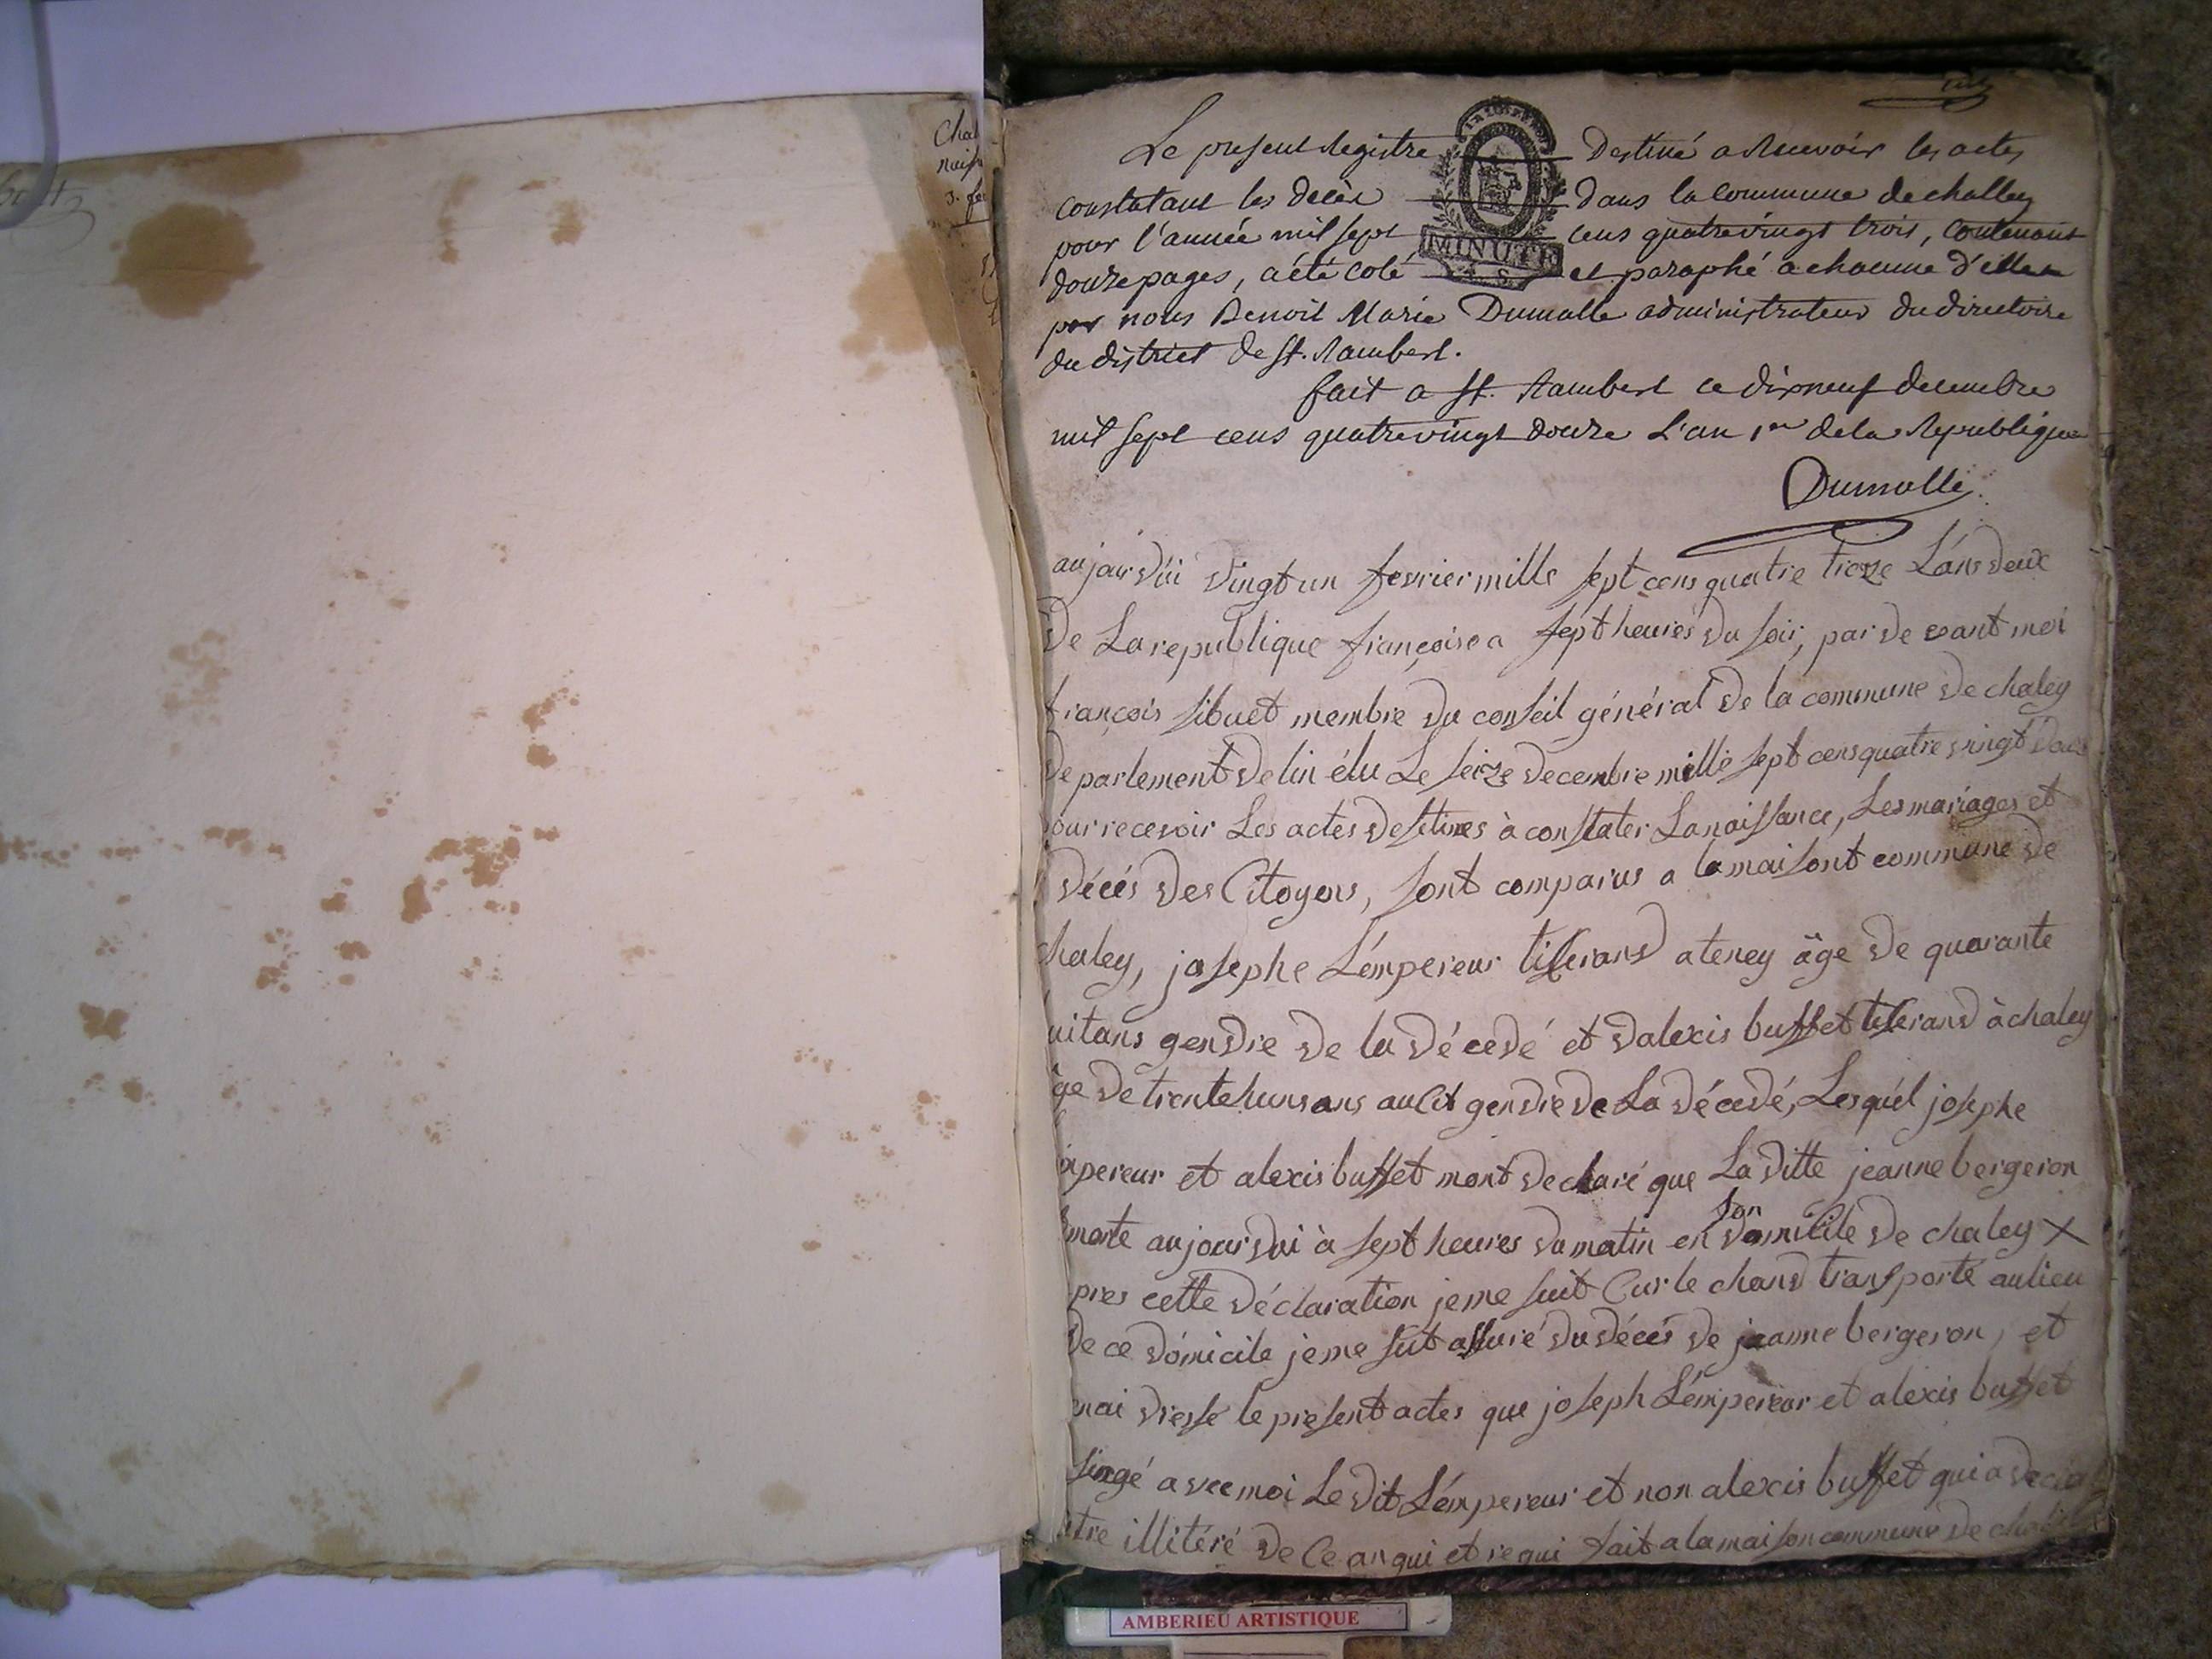 Le present Registre Destiné a Recevoir les actes
constatant les decès dans la Commune de challey
pour l'année mil sept cens quatrevingt trois, contenant
douze pages, a été coté et paraphé a chacune d'elles
par nous Benoit Marie Dumolle administrateur du directoire
du district de St. Rambert.
fait a St. Rambert ce dixneuf decembre
mil sept cens quatrevingt douze L'an 1er de la Republique
MINUTE
Dumolle
aujourdui vingt un fevrier mille sept cens quatre treze L'ans deux
De La republique françoise a sept heures du soir, par de vant moi
françois sibuet membre du conseil général de la commune de chaley
departement de lin élu Le seize decembre mille sept cens quatre vingt
our recevoir Les actes destines à constater La naissance, Les mariages et
décés des Citoyens, sont comparus a la maisont commune de
chaley, josephe L'émpereur tisserand a teney âge de quarante
uitans gendre de la décedé et dalexis buffet tisserand à chaley
ge de trente huns ans aucit gendre de La décedé, Lesquél josephe
mpereur et alexis buffet mont declaré que La ditte jeanne bergeron
morte aujourdui à sept heures du matin en son domicile de chaley X
pres cette déclaration je me suit Cur le chand transporté au lieu
De ce dómicile je me suit assuré du décés de jeanne bergeron, et
nai dresse le present actes que joseph L'émpereur et alexis buffet
singé avec moi Le dit L'émpereur et non alexis buffet qui a
tre illitéré de Ce anqui et requi fait a la maison commune de
Chal
3. fe
AMBERIEU ARTISTIQUE